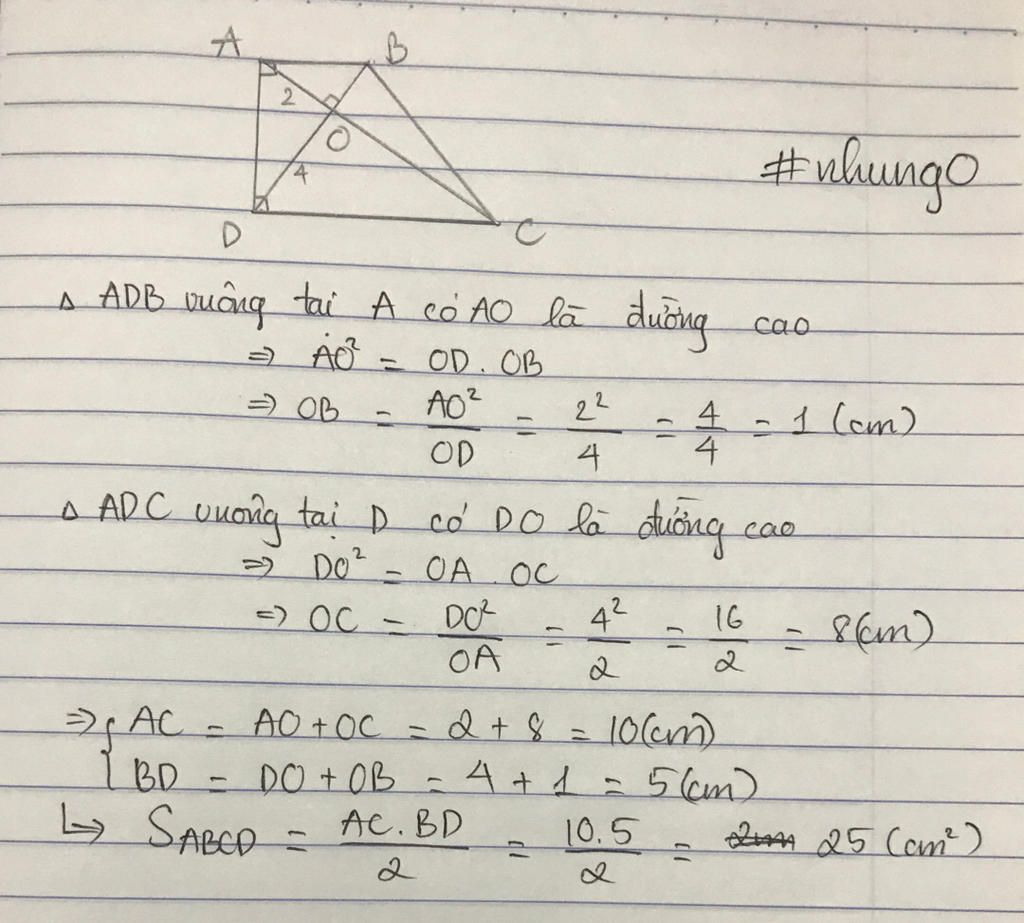 A B
2
O
4
D C
#nhung0
Δ ADB vuông tại A có AO là đường cao
⇒ AO² = OD . OB
⇒ OB = AO²/OD = 2²/4 = 4/4 = 1 (cm)
Δ ADC vuông tại D có DO là đường cao
⇒ DO² = OA . OC
⇒ OC = DO²/OA = 4²/2 = 16/2 = 8 (cm)
⇒ { AC = AO + OC = 2 + 8 = 10 (cm)
BD = DO + OB = 4 + 1 = 5 (cm)
↳ S_ABCD = AC.BD/2 = 10.5/2 = 25 (cm²)